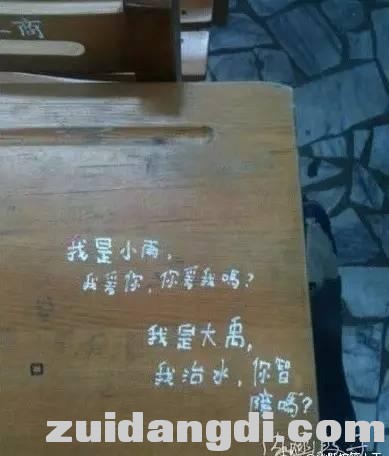 商
我是小雨，
我愛你，你愛我嗎？
我是大禹，
我治水，你智
障嗎？
zuidangdi.com